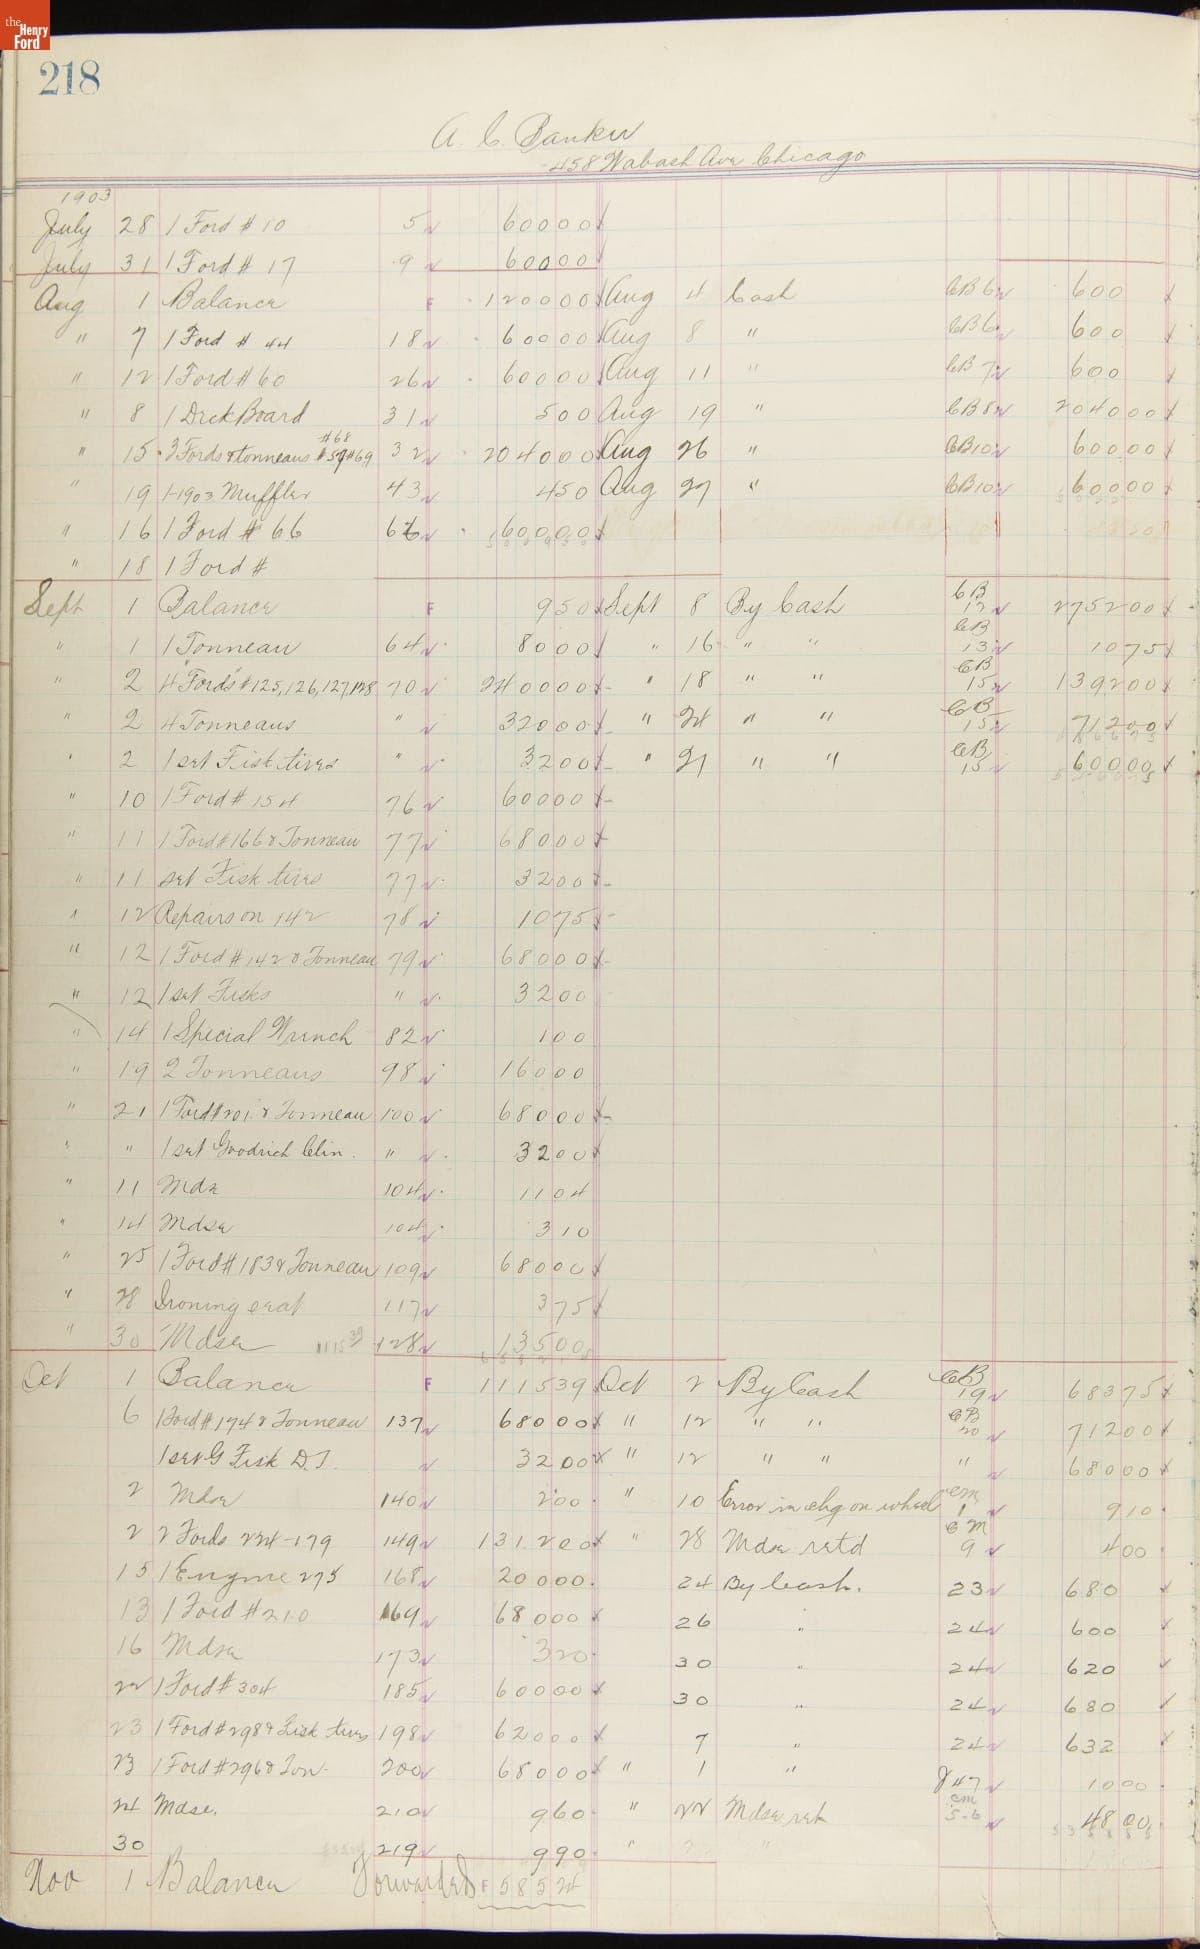 the Henry Ford
218
A. C. Banker
458 Wabash Ave Chicago
1903
July 28 1 Ford # 10 5 600 00
July 31 1 Ford # 17 9 600 00
Aug 1 Balance F 1200 00 Aug 4 Cash CB 6 600
" 7 1 Ford # 44 18 600 00 Aug 8 " CB 6 600
" 12 1 Ford # 60 26 600 00 Aug 11 " CB 7 600
" 8 1 Deck Board 31 5 00 Aug 19 " CB 8 2040 00
" 15 3 Fords & tonneaus #68 #59 #69 32 2040 00 Aug 26 " CB 10 600 00
" 19 1-1903 Muffler 43 4 50 Aug 27 " CB 10 600 00
" 16 1 Ford # 66 66 600 00
" 18 1 Ford #
Sept 1 Balance F 9 50 Sept 8 By Cash CB 12 2752 00
" 1 1 Tonneau 64 80 00 " 16 " " CB 13 10 75
" 2 4 "Fords" # 125, 126, 127, 128 70 2400 00 " 18 " " CB 15 1392 00
" 2 4 Tonneaus " 320 00 " 24 " " CB 15 712 00
" 2 1 set Fisk tires " 32 00 " 21 " " CB 15 600 00
" 10 1 Ford # 154 76 600 00
" 11 1 Ford # 166 & Tonneau 77 680 00
" 11 set Fisk tires 77 32 00
" 12 Repairs on 142 78 10 75
" 12 1 Ford # 142 & Tonneau 79 680 00
" 12 1 set Fisks " 32 00
" 14 1 Special Wrench 82 1 00
" 19 2 Tonneaus 98 160 00
" 21 1 Ford # 201 & Tonneau 100 680 00
" " 1 set Goodrich Clin. " 32 00
" 11 Mdse 104 11 04
" 14 Mdse 104 3 10
" 25 1 Ford # 183 & Tonneau 109 680 00
" 28 117 3 75
" 30 Mdse 1115 39 128 135 00
Oct 1 Balance F 1115 39 Oct 2 By Cash CB 19 683 75
6 1 Ford # 174 & Tonneau 137 680 00 " 12 " " CB 20 712 00
1 set G Fisk D.T. 32 00 " 12 " " " 680 00
2 Mdse 140 2 00 " 10 Error in chg on wheel cm 1 9 10
2 2 Fords 224-179 149 1312 00 " 28 Mdse retd CM 9 4 00
15 1 Engine 275 168 200 00 24 By Cash. 23 680
13 1 Ford # 210 169 680 00 26 " 24 600
16 Mdse 173 3 20 30 " 24 620
22 1 Ford # 304 185 600 00 30 " 24 680
23 1 Ford # 298 & Fisk tires 198 620 00 7 " 24 632
23 1 Ford # 296 & Ton. 200 680 00 " 1 " J 47 10 00
24 Mdse. 210 9 60 " 22 Mdse ret cm 5-6 48 00
30 219 9 90 "
Nov 1 Balance Forwarded F 585 24